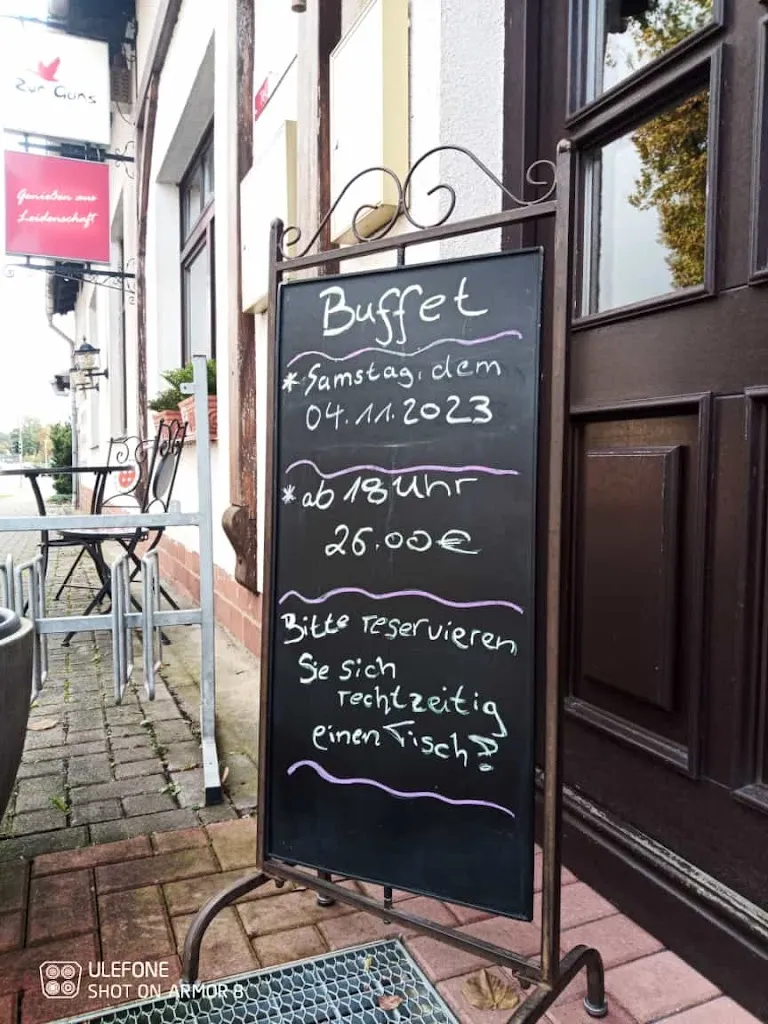 Zur Gans
Genießen aus
Leidenschaft
Buffet
* Samstag, dem
04.11.2023
* ab 18 Uhr
26.00€
Bitte reservieren
Sie sich
rechtzeitig
einen Tisch!
ULEFONE
SHOT ON ARMOR 8